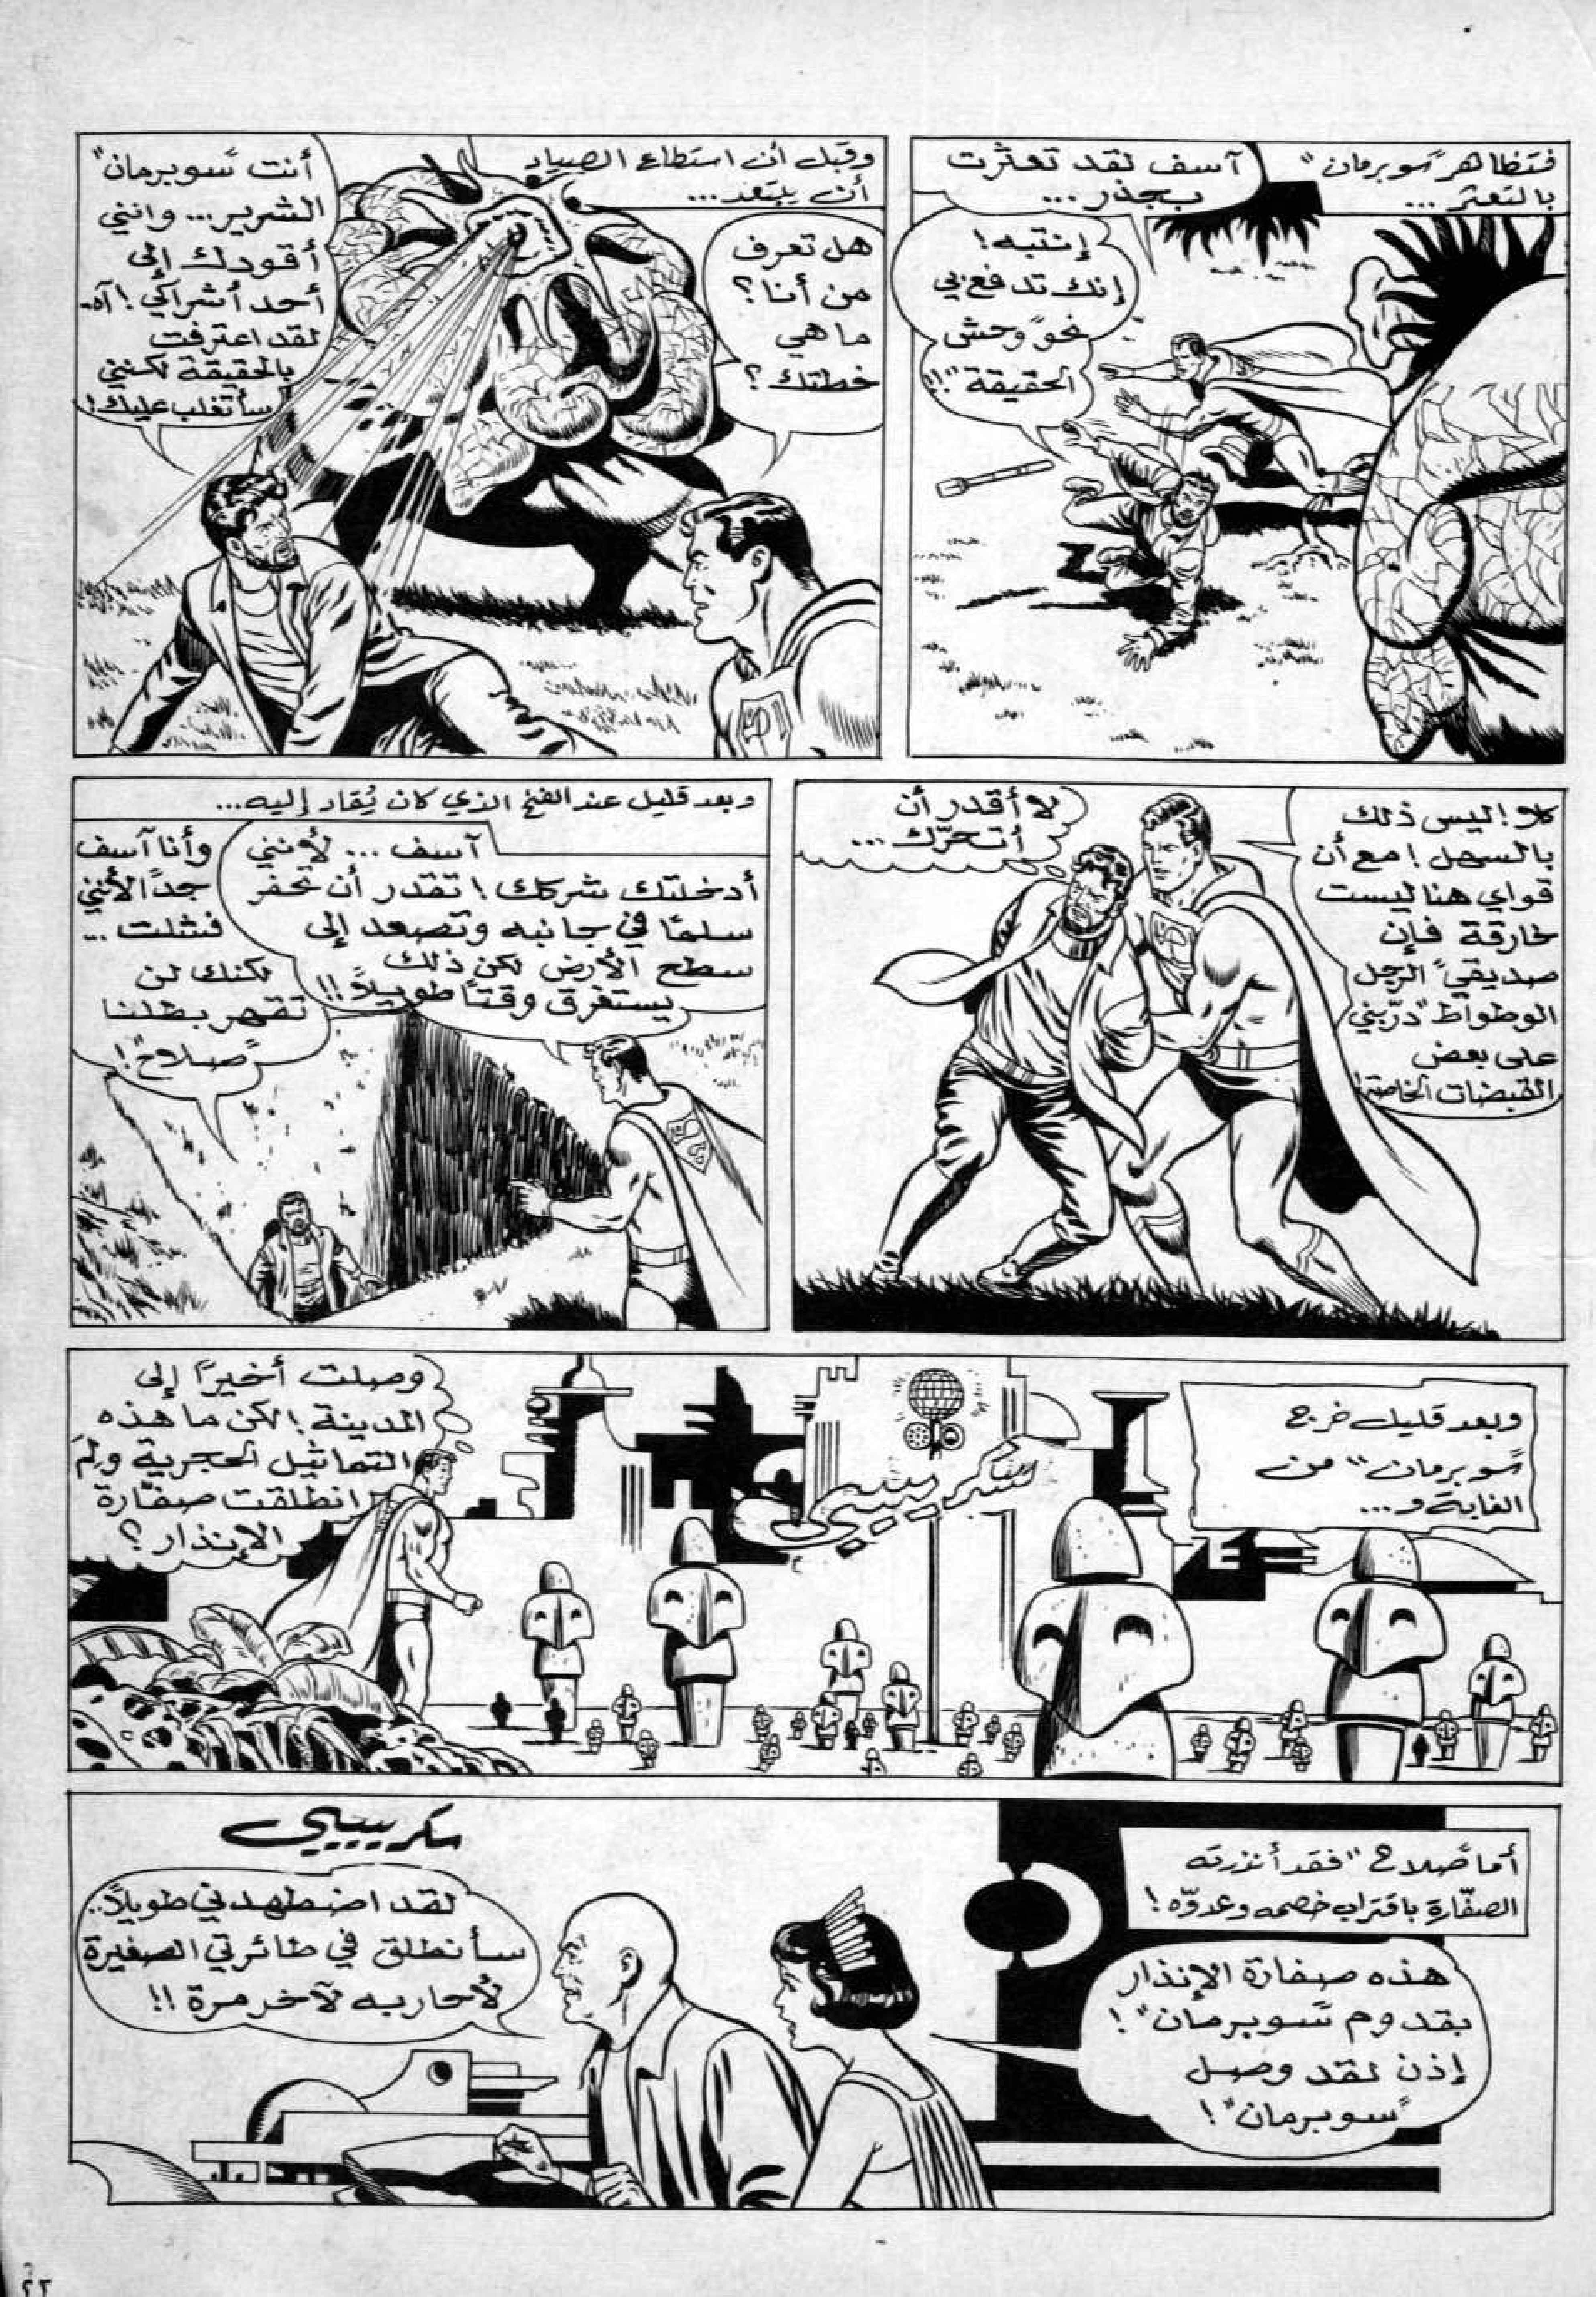 فتظاهر "سوبرمان"
بالتعثر ...
آسف لقد تعثرت
بجذر ...
إنتبه!
إنك تدفع بي
نحو "وحش
الحقيقة"!!
وقبل أن استطاع الصياد
أن يبتعد ...
هل تعرف
من أنا؟
ما هي
خطتك؟
أنت "سوبرمان"
الشرير ... وانني
أقودك إلى
أحد أشراكي! آه..
لقد اعترفت
بالحقيقة لكنني
سأتغلب عليك!
كلا! ليس ذلك
بالسهل! مع أن
قواي هنا ليست
خارقة فإن
صديقي "الرجل
الوطواط" درّبني
على بعض
القبضات الخاصة!
لا أقدر أن
أتحرّك ...
وبعد قليل عند الفخ الذي كان يُقاد إليه...
آسف ... لأنني
أدخلتك شركك! تقدر أن تحفر
سلمًا في جانبه وتصعد إلى
سطح الأرض لكن ذلك
يستغرق وقتًا طويلاً!!
وأنا آسف
جدًا لأنني
فشلت ..
لكنك لن
تقهر بطلنا
"صلاح"!
وبعد قليل خرج
"سوبرمان" من
الغابة و...
سكريييي
وصلت أخيرًا إلى
المدينة! لكن ما هذه
التماثيل الحجرية ولِمَ
انطلقت صفّارة
الإنذار؟
أما "صلاح" فقد أنذرته
الصفّارة باقتراب خصمه وعدوّه!
هذه صفارة الإنذار
بقدوم "سوبرمان"!
إذن لقد وصل
"سوبرمان"!
سكريييي
لقد اضطهدني طويلاً..
سأنطلق في طائرتي الصغيرة
لأحاربه لآخر مرة!!
٢٢